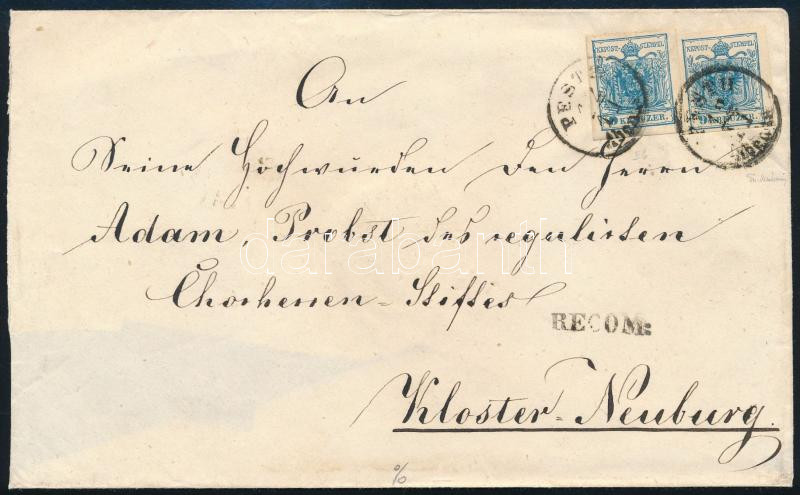 KKPOST-STEMPEL KKPOST-STEMPEL
9 KREUZER. 9 KREUZER.
PESTH
PESTH
An
Seine Hochwürden Den Herrn
Adam, Probst des regulirten
Chorherren-Stiftes
RECOM:
Kloster-Neuburg.
darabanth
%